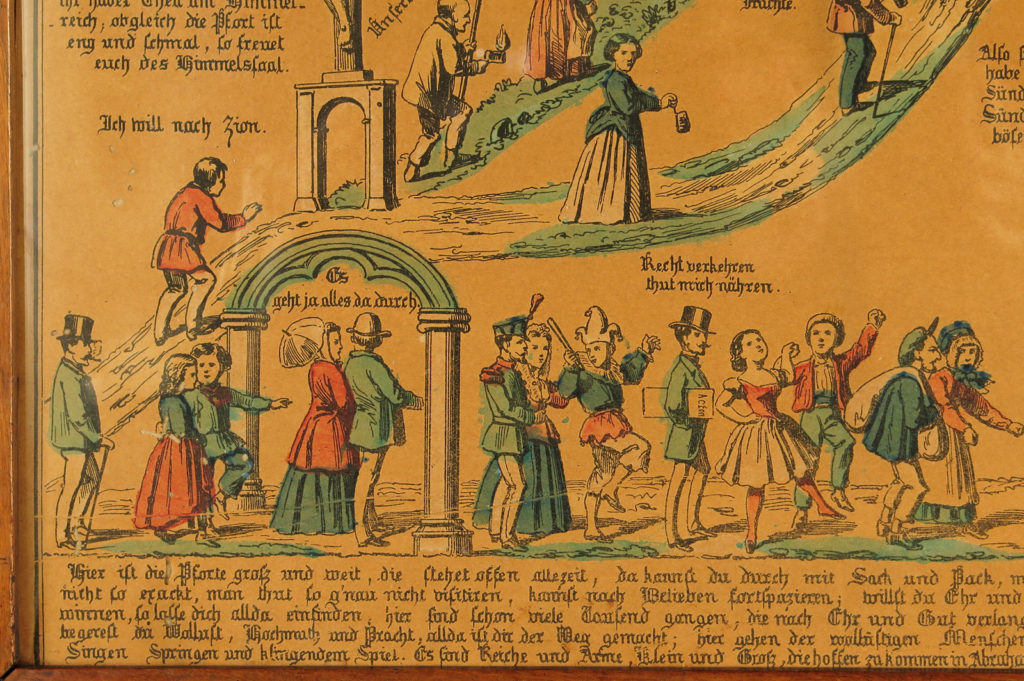 ihr habet Theil am Himmel-
reich; obgleich die Pfort ist
eng und schmal, so freuet
euch des Himmelssaal.
Unsern
Früchte.
Also
habe
Sünd
Sünd
böse
Ich will nach Zion.
Es
geht ja alles da durch
Recht verkehren
thut mich nähren.
Acten
Hier ist die Pforte groß und weit, die stehet offen allezeit, da kannst du durch mit Sack und Pack, m
nicht so exackt, man thut so g'nau nicht visitiren, kannst nach Belieben fortspazieren; willst du Ehr und
winnen, so lasse dich allda einfinden; hier sind schon viele Tausend gangen, die nach Ehr und Gut verlang
begerest du Wollust, Hochmuth und Pracht, allda ist dir der Weg gemacht; hier gehen der wollüstigen Menschen
Singen Springen und klingendem Spiel. Es sind Reiche und Arme, Klein und Groß, die hoffen zu kommen in Abraha